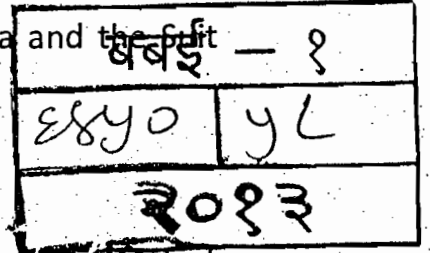 a and the Suit
बबई – १
६४५० ५८
२०१३